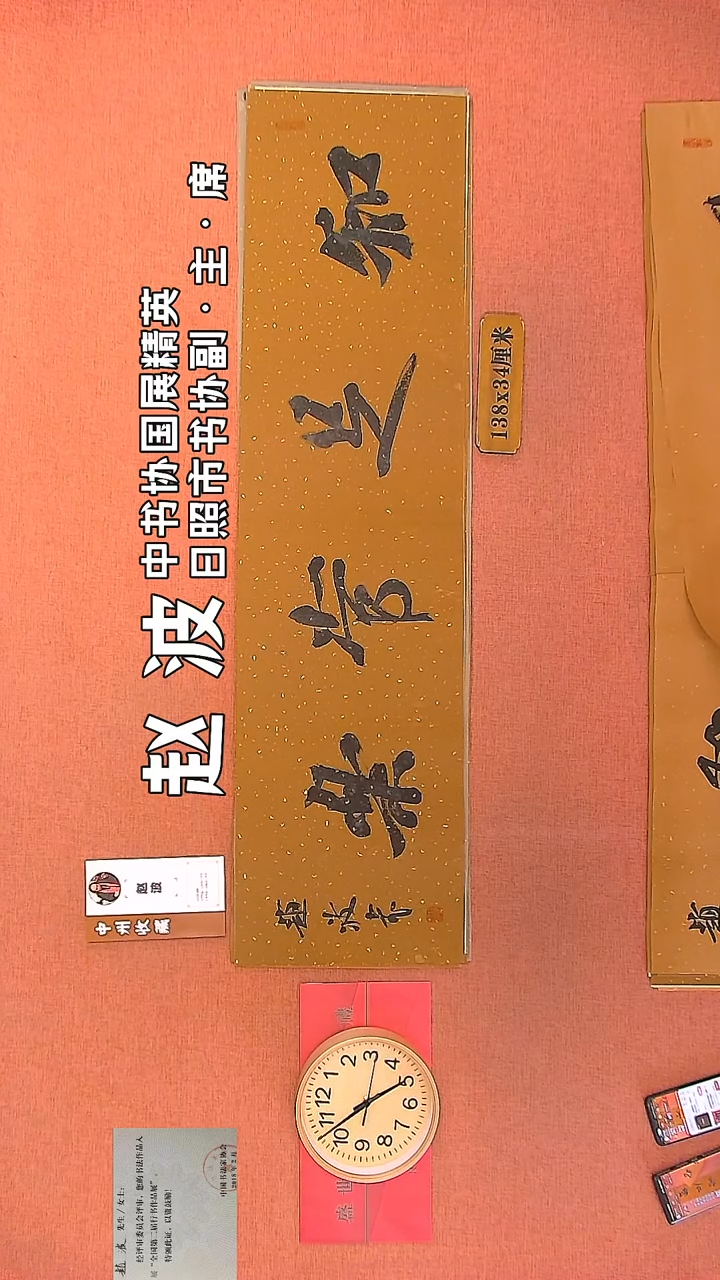 赵 波
中书协国展精英
日照市书协副·主·席
知足常樂
趙波书
138x34厘米
赵波
中州收藏
12
1
2
3
4
5
6
7
8
9
10
11
盛世
趙波 先生/女士:
经评审委员会评审,您的书法作品入
展“全国第二届行书作品展”。
特颁此证,以资鼓励!
中国书法家协会